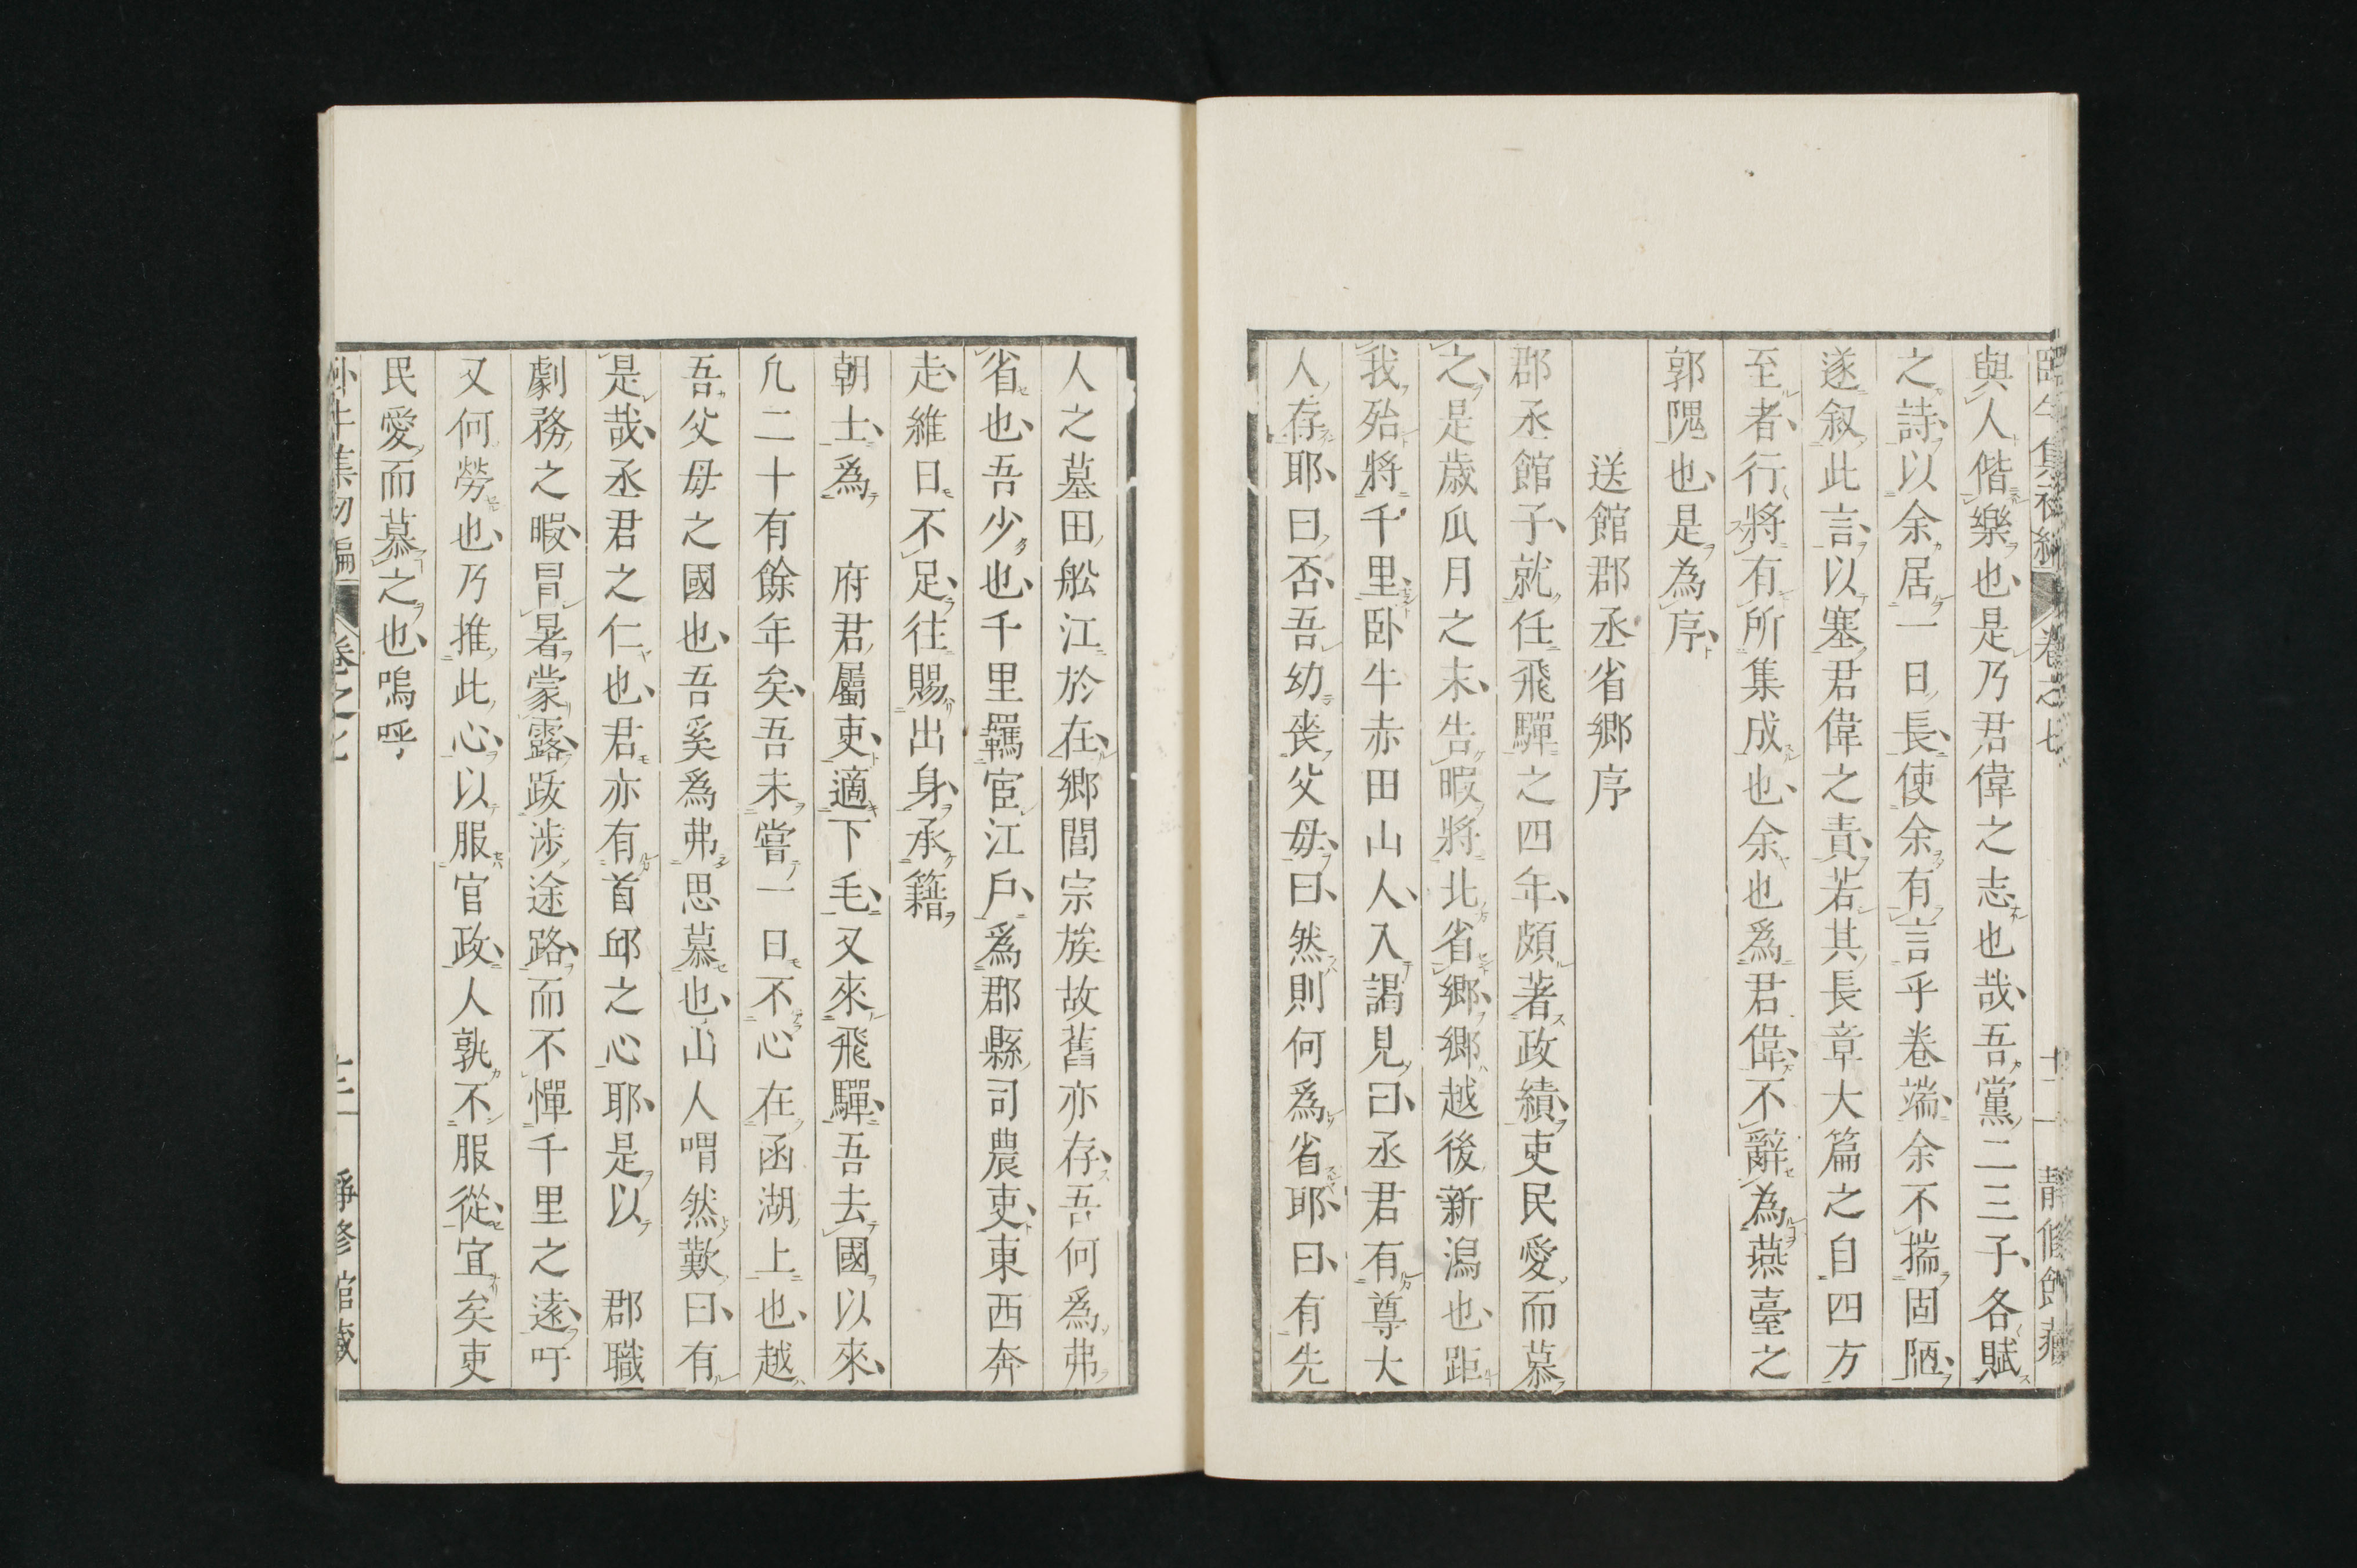 與人偕樂也是乃君偉之志也哉吾黨二三子各賦
之詩以余居一日長使余有言乎卷端余不揣固陋
遂叙此言以塞君偉之責若其長章大篇之自四方
至者行將有所集成也余也爲君偉不辭為燕臺之
郭隗也是為序
送館郡丞省郷序
郡丞館子就任飛驒之四年頗著政績吏民愛而慕
之是歳瓜月之末告暇將北省郷郷越後新潟也距
我殆將千里卧牛赤田山人入謁見曰丞君有尊大
人存耶曰否吾幼喪父母曰然則何爲省耶曰有先
人之墓田舩江於在郷閭宗族故舊亦存吾何爲弗
省也吾少也千里羈宦江戶爲郡縣司農吏東西奔
走維日不足往賜出身承籍
朝士爲 府君屬吏適下毛又來飛驒吾去國以來
凢二十有餘年矣吾未嘗一日不心在函湖上也越
吾父母之國也吾奚爲弗思慕也山人喟然歎曰有
是哉丞君之仁也君亦有首邱之心耶是以 郡職
劇務之暇冒暑蒙露跋渉途路而不憚千里之遠吁
又何勞也乃推此心以服官政人孰不服從宜矣吏
民愛而慕之也嗚呼
卷之七